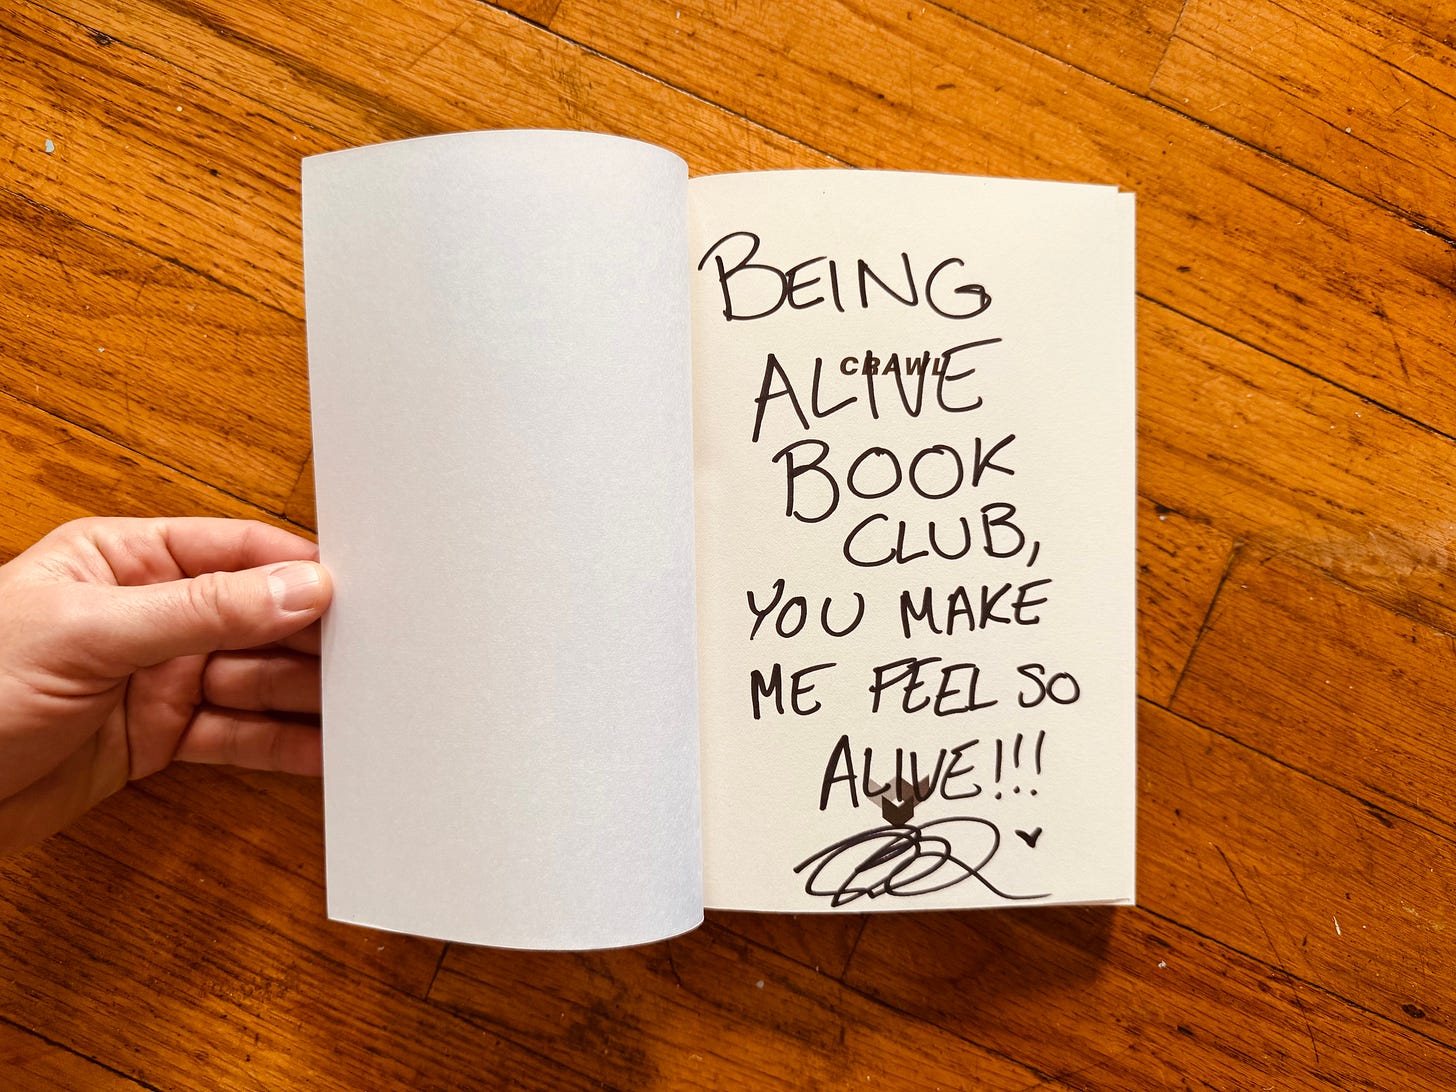 BEING
CRAWL
ALIVE
BOOK
CLUB,
YOU MAKE
ME FEEL SO
ALIVE!!!